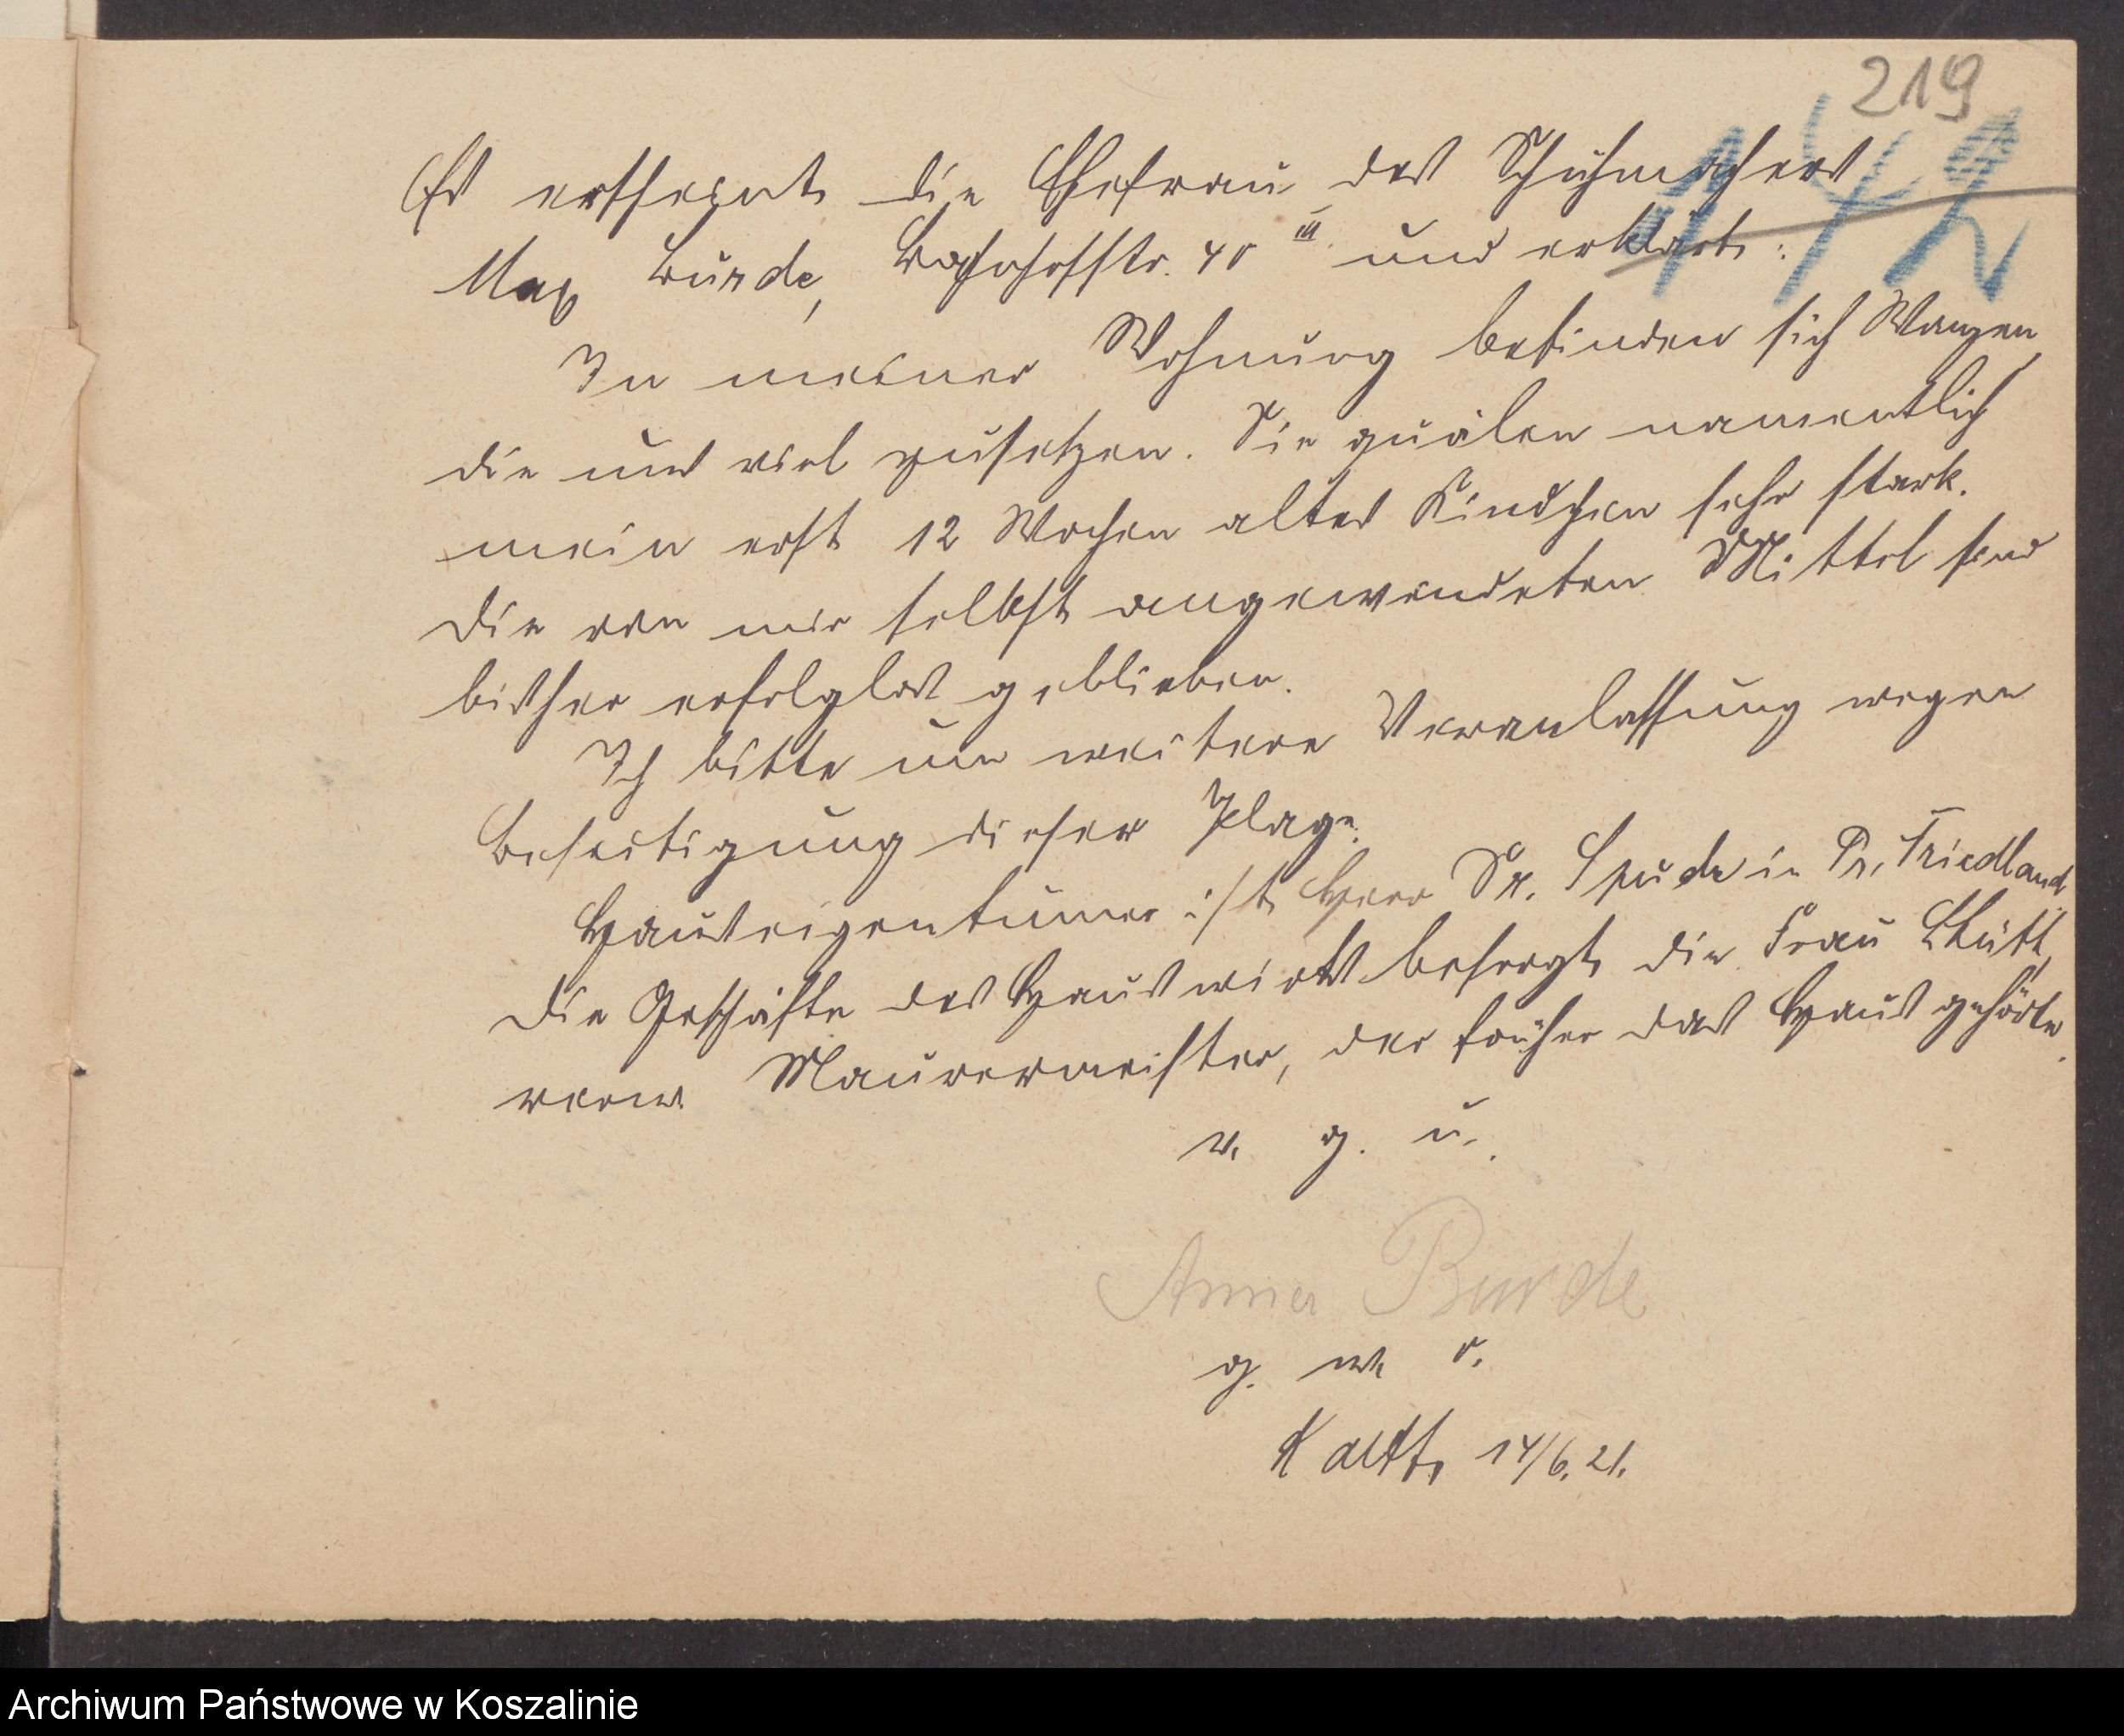 219
142
Es erscheint die Ehefrau des Schuhmachers
Max Burde, Bahnhofstr. 40 III. und erklärt:
In meiner Wohnung befinden sich Wanzen,
die uns viel zusetzen. Sie quälen namentlich
mein erst 12 Wochen altes Kindchen sehr stark.
Die von mir selbst angewendeten Mittel sind
bisher erfolglos geblieben.
Ich bitte um weitere Veranlassung wegen
Beseitigung dieser Plage.
Hauseigentümer ist Herr Dr. Spude in Pr. Friedland.
Die Geschäfte des Hauswirts besorgt die Frau
verw. Maurermeister, der früher das Haus gehörte.
v. g. u.
Anna Burde
g. w. o.
14/6. 21.
Archiwum Państwowe w Koszalinie